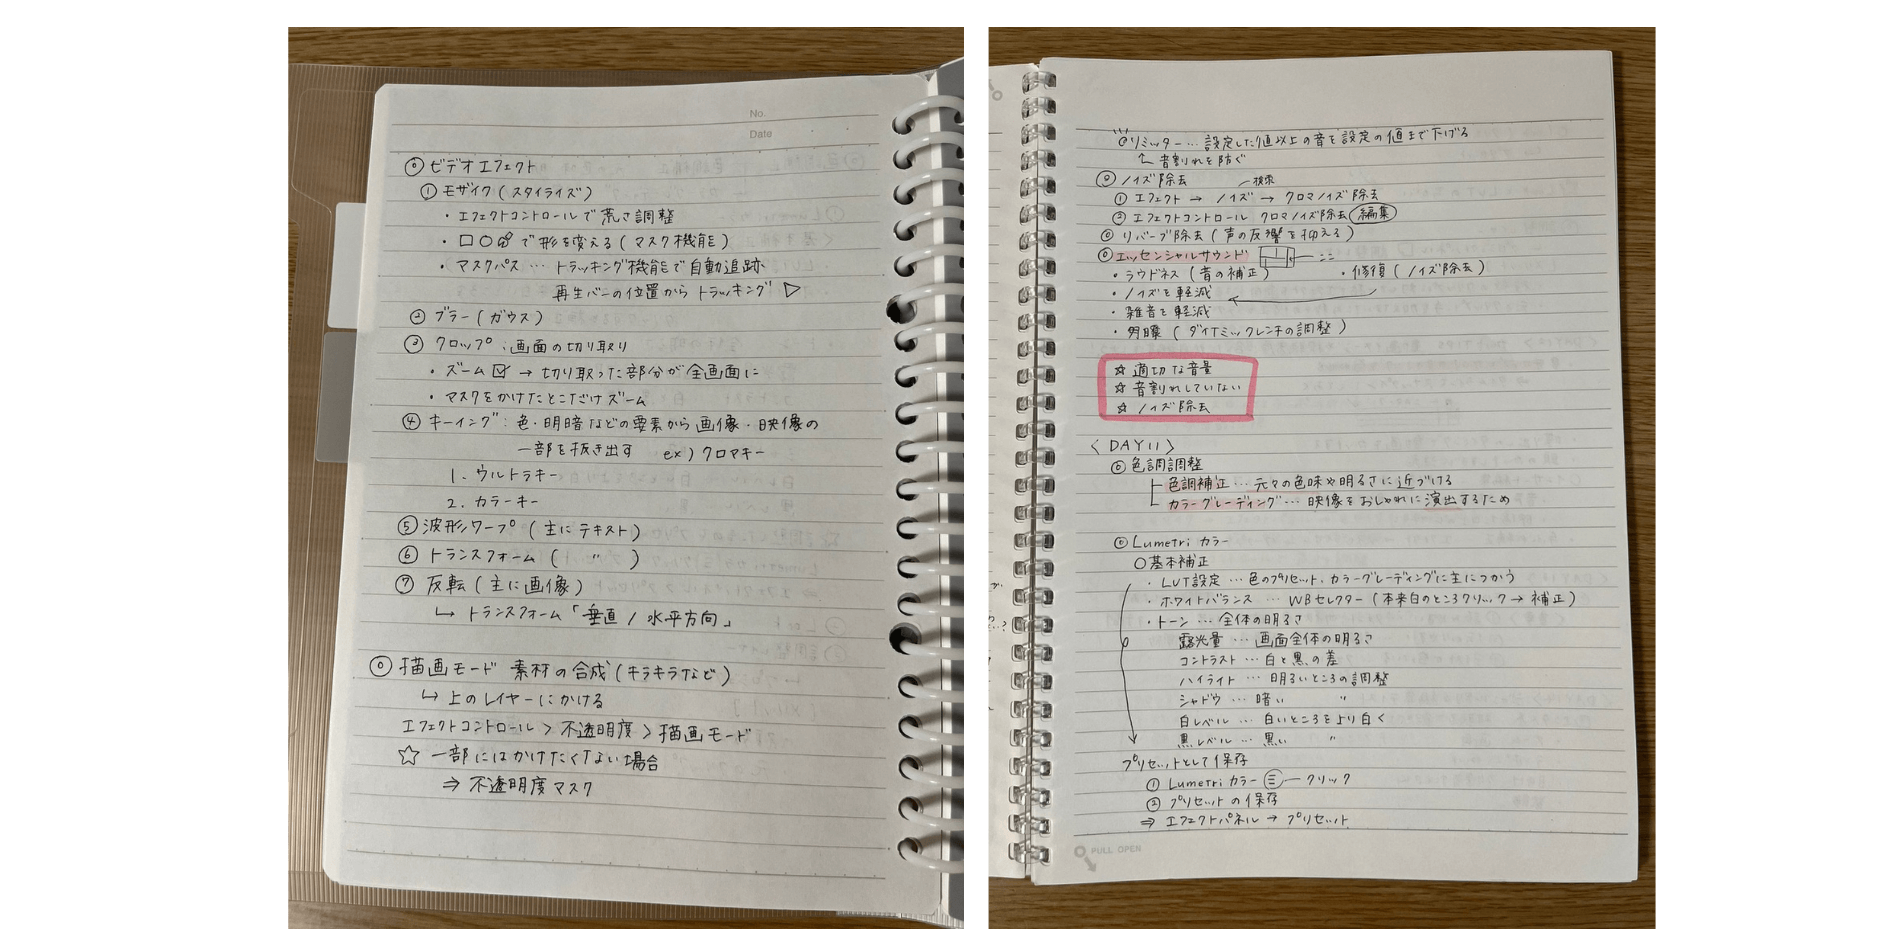 No.
Date
◎ ビデオエフェクト
① モザイク(スタイライズ)
・エフェクトコントロールで荒さ調整
・□○ で形を変える(マスク機能)
・マスクパス … トラッキング機能で自動追跡
再生バーの位置からトラッキング ▷
② ブラー(ガウス)
③ クロップ:画面の切り取り
・ズーム☑ → 切り取った部分が全画面に
・マスクをかけたとこだけズーム
④ キーイング:色・明暗などの要素から画像・映像の
一部を抜き出す ex) クロマキー
1. ウルトラキー
2. カラーキー
⑤ 波形ワープ(主にテキスト)
⑥ トランスフォーム( 〃 )
⑦ 反転(主に画像)
↳ トランスフォーム「垂直 / 水平方向」
◎ 描画モード 素材の合成(キラキラなど)
↳ 上のレイヤーにかける
エフェクトコントロール > 不透明度 > 描画モード
☆ 一部にはかけたくない場合
⇒ 不透明度マスク
◎リミッター … 設定した値以上の音を設定の値まで下げる
↖ 音割れを防ぐ
◎ ノイズ除去
検索
① エフェクト → ノイズ → クロマノイズ除去
② エフェクトコントロール クロマノイズ除去 編集
◎ リバーブ除去(声の反響を抑える)
◎ エッセンシャルサウンド ここ
・ラウドネス(音の補正) ・修復(ノイズ除去)
・ノイズを軽減 ←
・雑音を軽減
・明瞭(ダイナミックレンジの調整)
☆ 適切な音量
☆ 音割れしていない
☆ ノイズ除去
〈DAY11〉
◎ 色調調整
色調補正 … 元々の色味や明るさに近づける
カラーグレーディング … 映像をおしゃれに演出するため
◎ Lumetri カラー
○ 基本補正
・LUT設定 … 色のプリセット、カラーグレーディングに主につかう
・ホワイトバランス … WBセレクター(本来白のところクリック → 補正)
・トーン … 全体の明るさ
露光量 … 画面全体の明るさ
コントラスト … 白と黒の差
ハイライト … 明るいところの調整
シャドウ … 暗い 〃
白レベル … 白いところをより白く
黒レベル … 黒い 〃
プリセットとして保存
① Lumetri カラー ≡ クリック
② プリセットの保存
⇒ エフェクトパネル → プリセット
PULL OPEN